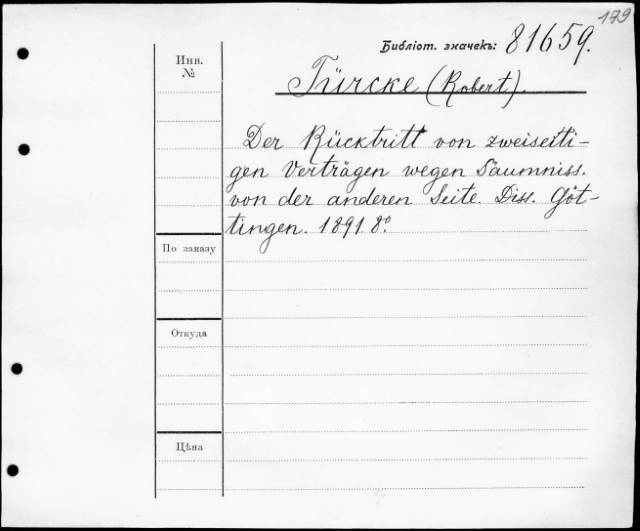 179
Библіот. значекъ: 81659.
Инв.
№
Türcke (Robert).
Der Rücktritt von zweiseiti-
gen Verträgen wegen Säumniss.
von der anderen Seite. Diss. Göt-
tingen. 1891. 8.º
По заказу
Откуда
Цѣна